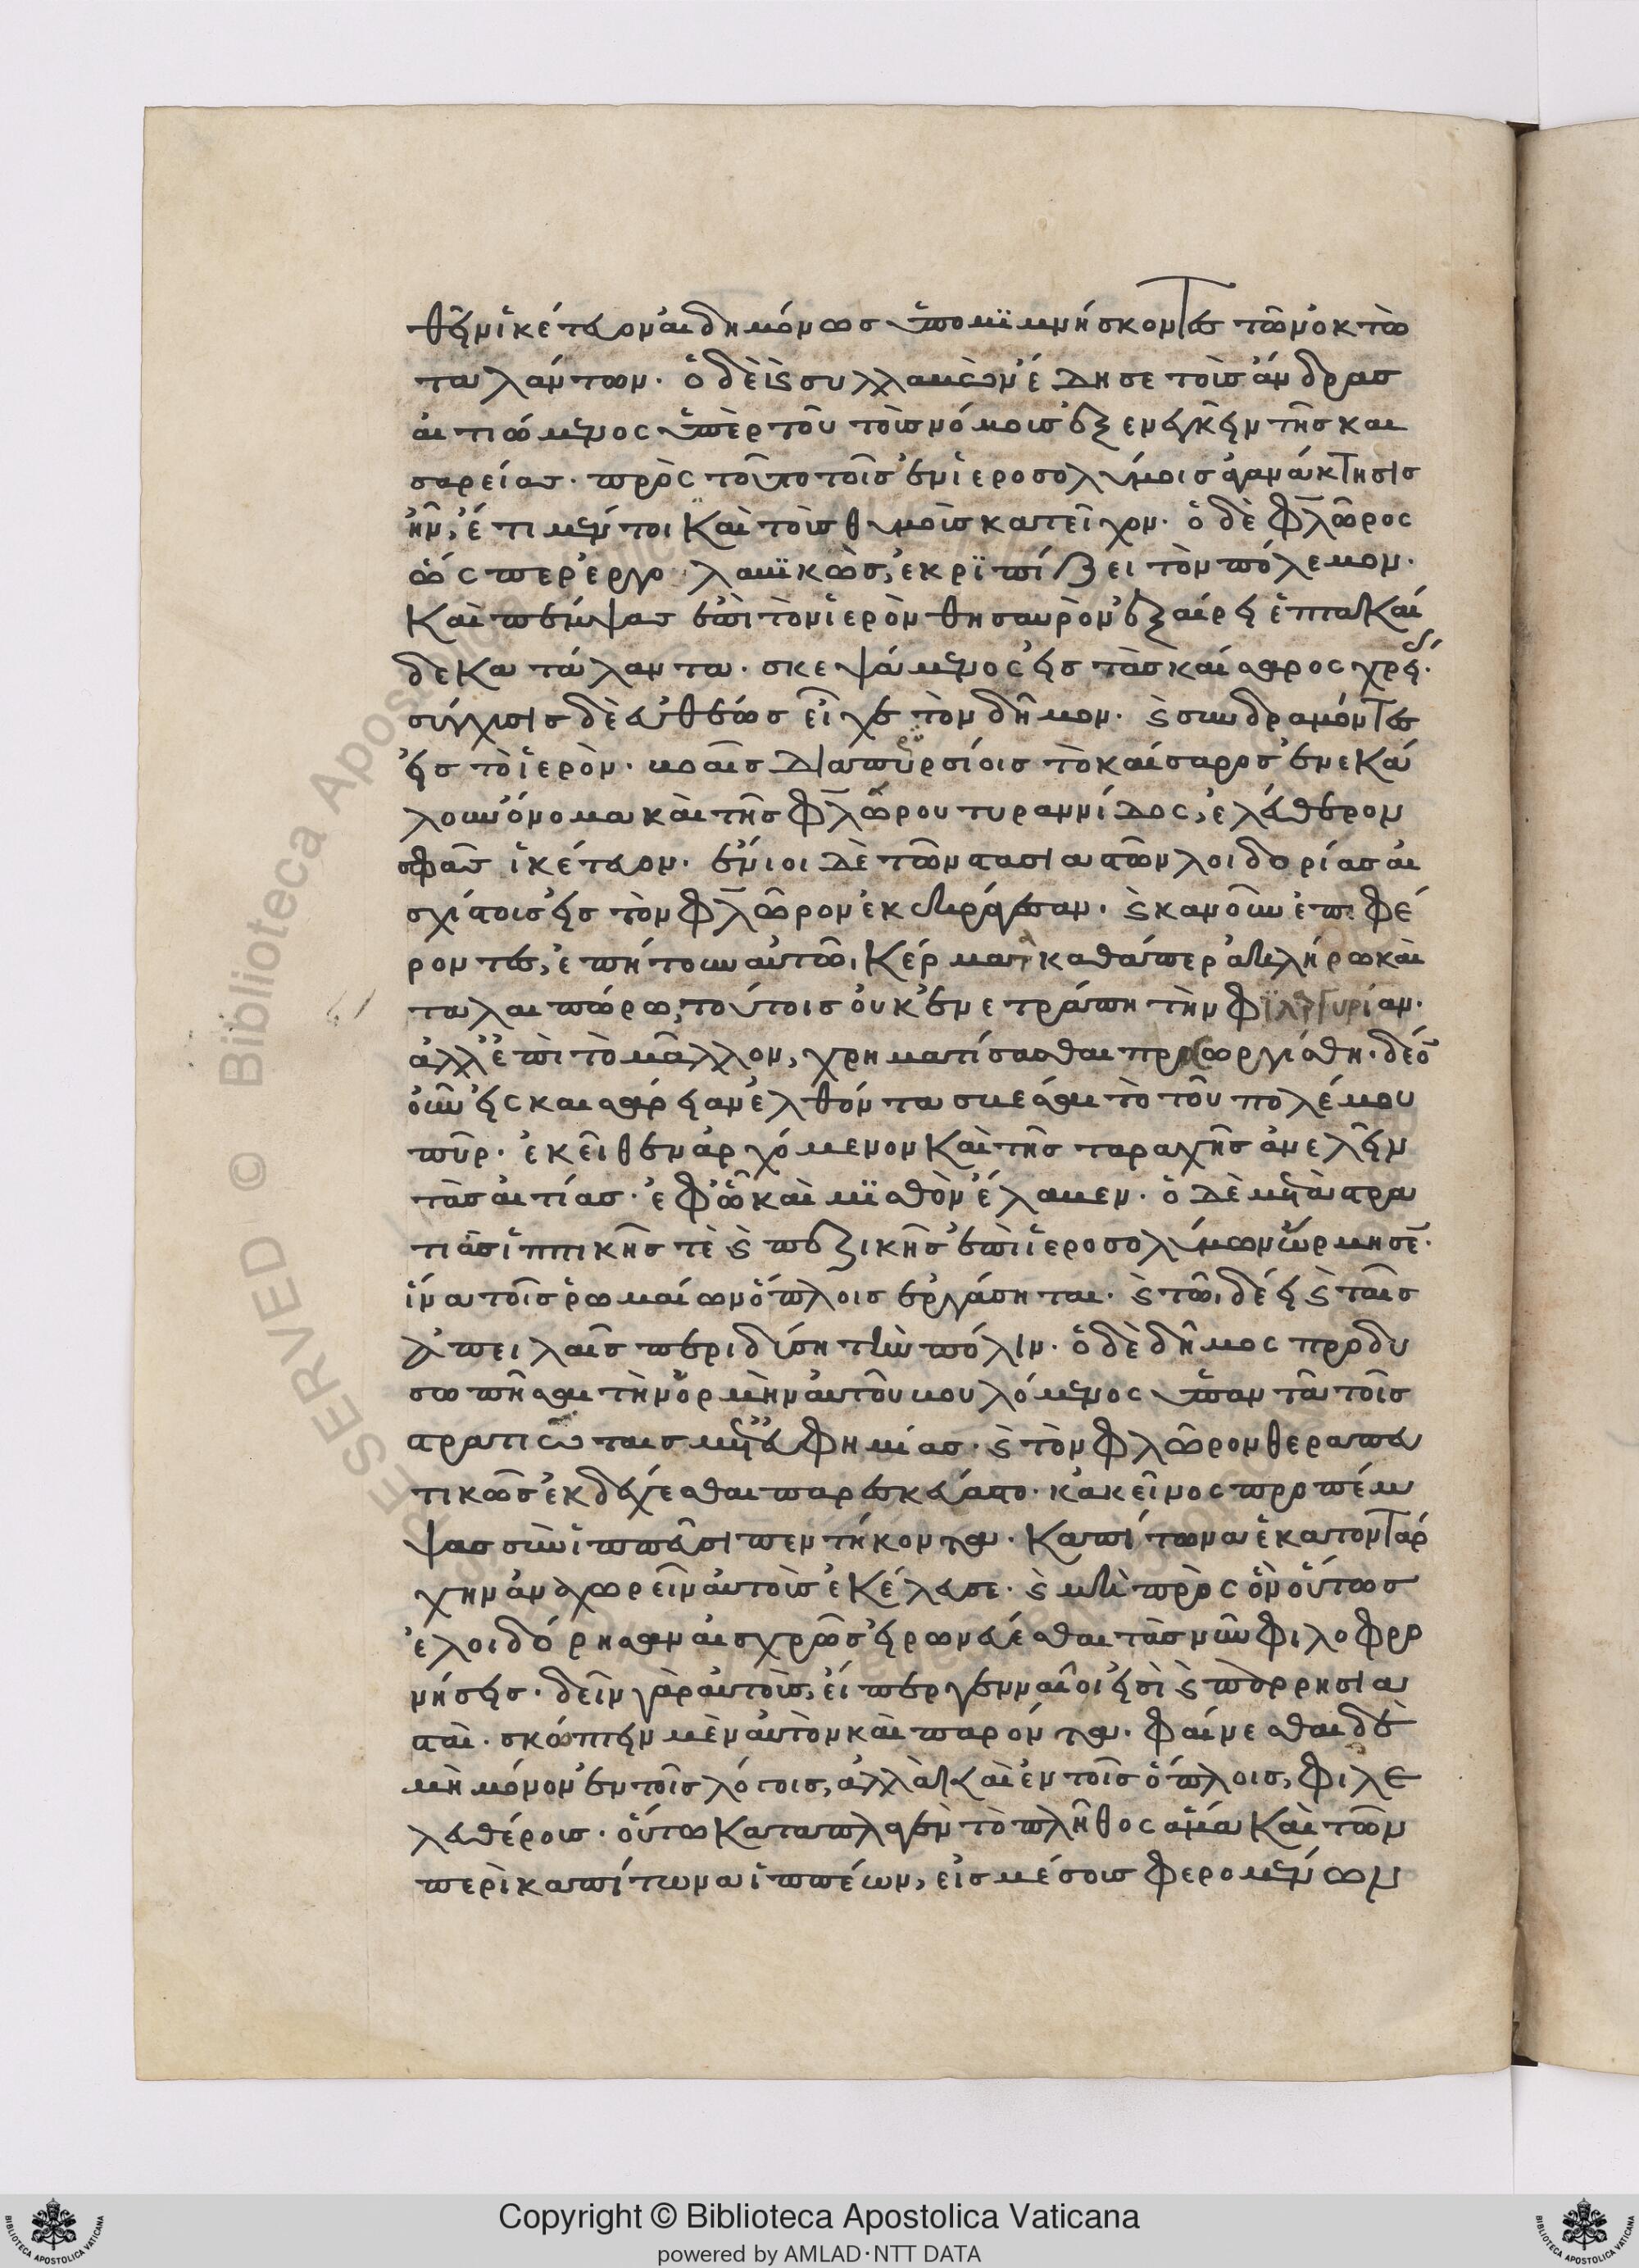 θεῖν ἱκέτευον αἰδημόνως ὑπομϊμνήσκοντες τῶν ὀκτὼ
ταλάντων. ὁ δὲ καὶ συλλαβὼν ἔδησε τοὺς ἄνδρας
αἰτιώμενος ὑπὲρ τοῦ τοὺς νόμους ἐξενεγκεῖν τῆς και
σαρείας. πρὸς τοῦτο τοῖς ἐν ἱεροσολύμοις ἀγανάκτησις
ἦν, ἔτι μέντοι καὶ τοὺς θυμοὺς κατεῖχον. ὁ δὲ φλῶρος
ὥσπερ ἐργολαβϊκῶς, ἐκρϊπίζει τὸν πόλεμον.
καὶ πέμψας ἐπὶ τὸν ἱερὸν θησαυρὸν ἐξαίρει ἑπτακαί
δεκα τάλαντα. σκεψάμενος εἰς τὰς καίσαρος χρεί.
σύγχυσις δὲ εὐθέως εἶχε τὸν δῆμον. καὶ συνδραμόντες
εἰς τὸ ἱερὸν. βοαῖς διαπυρσίοις τὸ καίσαρος ἐνεκά
λουν ὄνομα καὶ τῆς φλώρου τυραννίδος, ἐλευθεροῦν
σφᾶς ἱκέτευον. ἔνιοι δὲ τῶν στασιαστῶν λοιδορίας αἰ
σχίστους εἰς τὸν φλῶρον ἐκεκράγεσαν. καὶ κανοῦν ἐπιφέ
ροντες, ἐπῄτουν αὐτῶ, κέρματα καθάπερ ἀκλήρω καὶ
ταλαιπώρω, τούτοις οὐκ ἐνετράπη τὴν φϊλαργυρίαν.
ἀλλ' ἐπὶ τὸ μᾶλλον, χρηματίσασθαι προσωργίσθη. δέον
οὖν εἰς καισάρειαν ἐλθόντα σβέσαι τὸ τοῦ πολέμου
πῦρ. ἐκεῖθεν ἀρχόμενον καὶ τῆς ταραχῆς ἀνελεῖν
τὰς αἰτίας. ἐφ' ὧ καὶ μϊσθὸν ἔλαβεν. ὁ δὲ μετὰ στρα
τιᾶς ἱππικῆς τὲ καὶ πεζικῆς ἐπὶ ἱεροσολύμων ὥρμησε.
ἵνα τοῖς ῥωμαίων ὅπλοις ἐργάσηται. καὶ τῶ, δέει καὶ ταῖς
ἀπειλαῖς περιδύση τὴν πόλιν. ὁ δὲ δῆμος προδυ
σωπῆσαι τὴν ὁρμὴν αὐτοῦ βουλόμενος ὑπαντᾶ τοῖς
στρατιώταις μετ' εὐφημίας. καὶ τὸν φλῶρον θεραπευ
τικῶς ἐκδέχεσθαι παρεσκεύαστο. κἀκεῖνος προπέμ
ψας σὺν ἱππεῦσι πεντήκοντα. καπίτωνα ἑκατοντάρ
χην ἀναχωρεῖν αὐτοὺς ἐκέλευσε. καὶ μὴ πρὸς ὃν οὕτως
ἐλοιδόρησαν αἰσχρῶς εἰρωνεύεσθαι τὰς νῦν φιλοφρο
νήσεις. δεῖν γὰρ αὐτοὺς, εἴπερ γενναῖοί εἰσὶ καὶ παρρησια
σταὶ. σκώπτειν μὲν αὐτὸν καὶ παρόντα. φαίνεσθαι δὲ
μὴ μόνον ἐν τοῖς λόγοις, ἀλλὰ καὶ ἐν τοῖς ὅπλοις, φιλε
λευθέρους. οὕτω καταπλαγὲν τὸ πλῆθος ἅμα καὶ τῶν
περὶ καπίτωνα ἱππέων, εἰς μέσους φερομένων